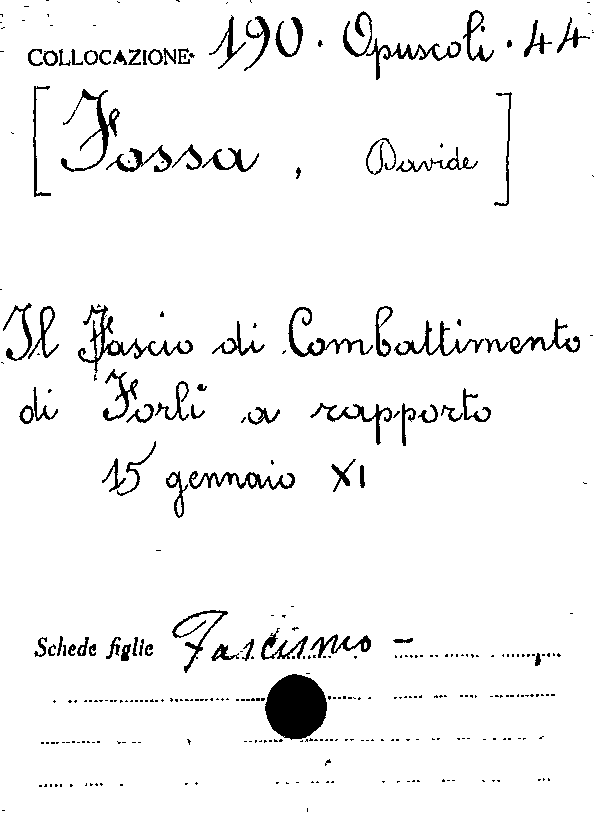 COLLOCAZIONE 190. Opuscoli. 44
[Fossa, Davide]
Il Fascio di Combattimento
di Forlì a rapporto
15 gennaio XI
Schede figlie Fascismo -